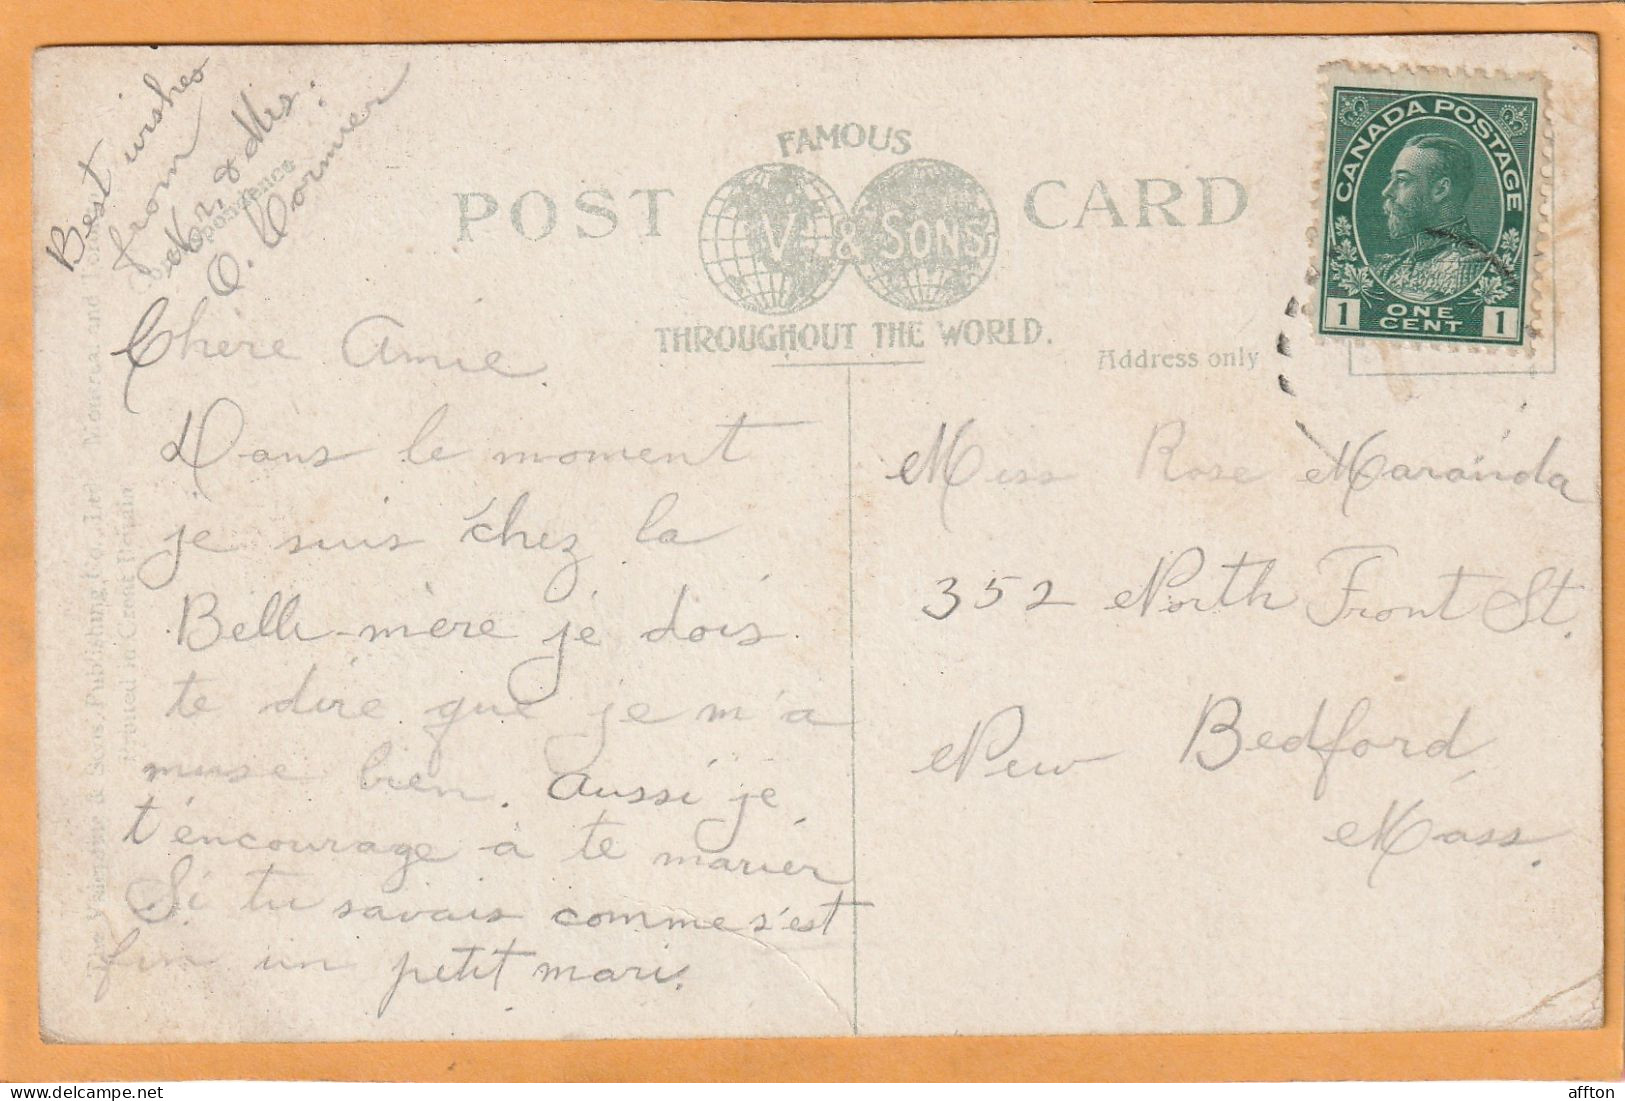 Best wishes
from
Mr. & Mrs.
O. Cormier
Correspondence
FAMOUS
POST CARD
V & SONS
THROUGHOUT THE WORLD.
Address only
CANADA POSTAGE
1 ONE CENT 1
Chère Amie
Dans le moment
je suis chez la
Belle-mère je dois
te dire que je m'a
muse bien. aussi je
t'encourage à te marier
Si tu savais comme s'est
fin un petit mari.
Miss Rose Maranda
352 North Front St.
New Bedford,
Mass.
The Valentine & Sons, Publishing Co., Ltd. Montreal and
Printed in Great Britain
affton